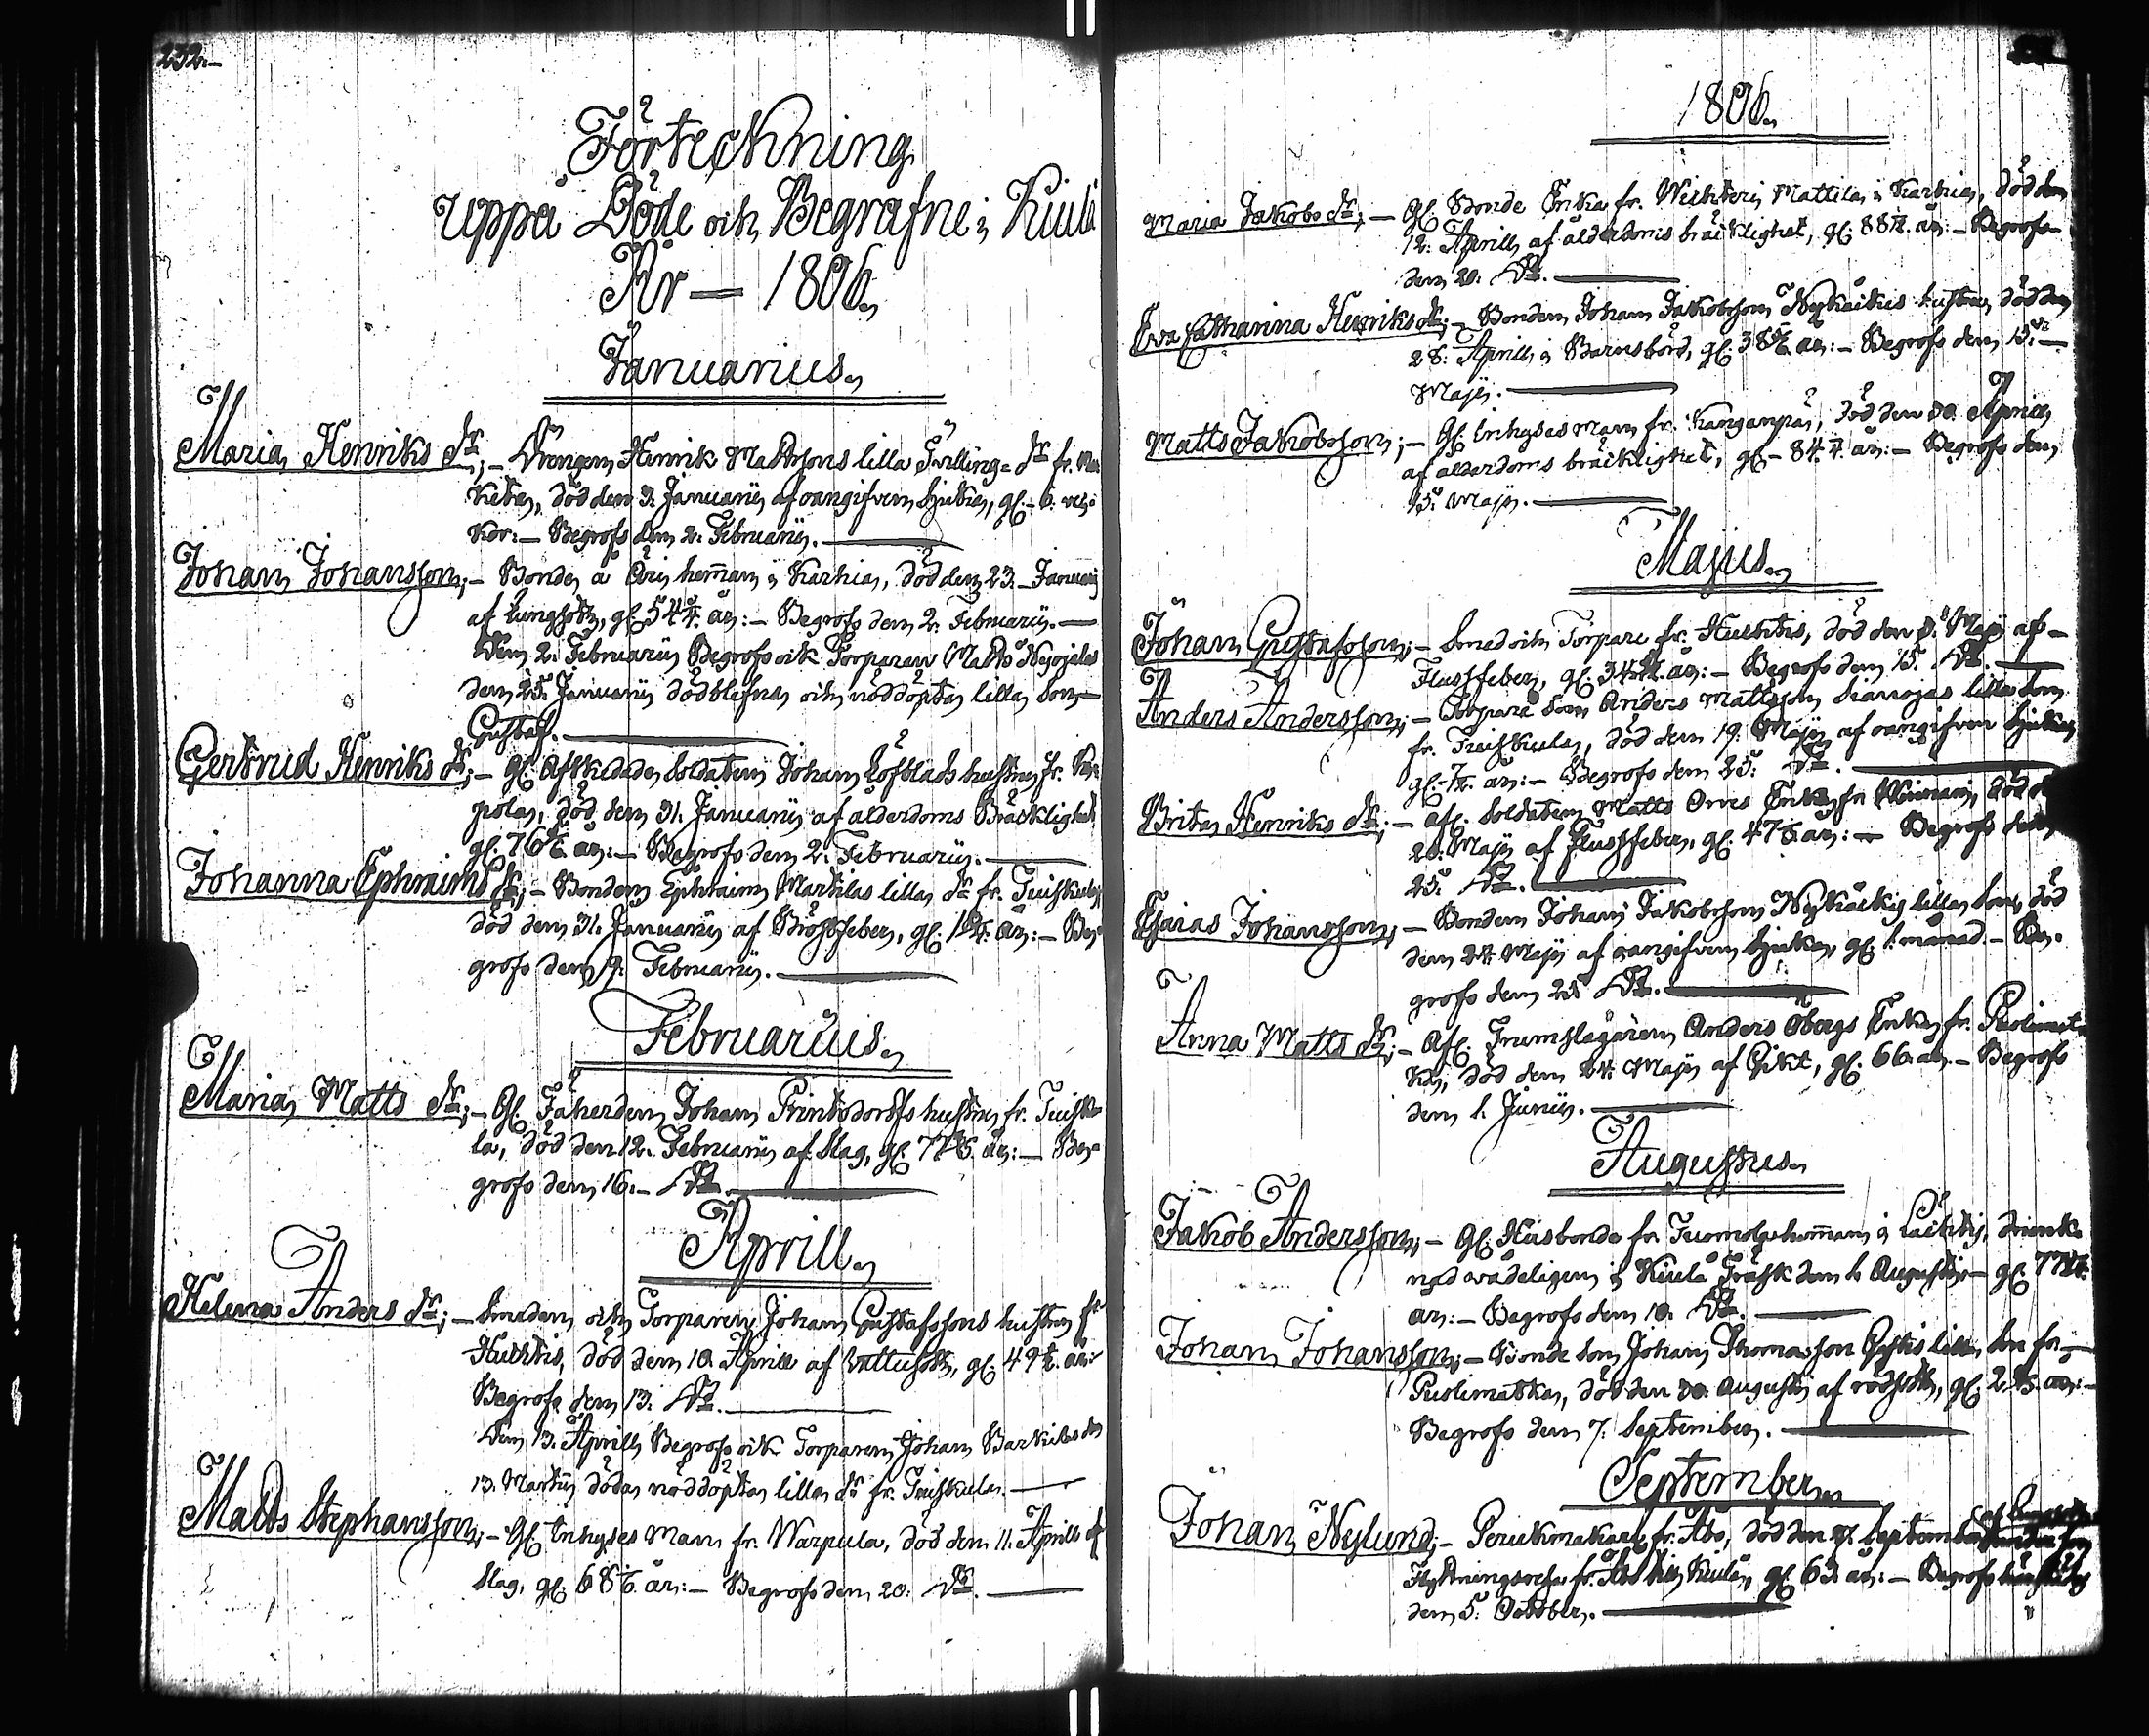 232.
Förteckning
uppå Döde och Begrafne i Kiula
År — 1806.
Januarius.
Maria Henriks dr; — Drängen Henrik Mattssons lilla Tvilling-dr fr.
död den 3. Januarii af oangifven sjuka, gl. 6. vec-
kor: — Begrofs den 2. Februarii.
Johan Johansson; — Bonden å hemman i Karhia, död den 23. Januarii
af lungsot, gl. 54 år: — Begrofs den 2. Februarii. —
Den 2. Februarii Begrofs ock Torparen Matts Nyojas
den 25. Januarii dödblefna och nöddöpta lilla Son —
Gustaf.
Gertrud Henriks dr; — gl. Afskedade Soldaten Johan Löfblads hustru fr.
pola, död den 31. Januarii af ålderdoms Bräcklighet
gl. 76 år: — Begrofs den 2. Februarii. —
Johanna Ephraims dr; — Bonden Ephraim Martilas lilla dr fr. Tuiskula,
död den 31. Januarii af Bröstfeber, gl. 1 år: — Be-
grofs den 9. Februarii.
Februarius.
Maria Matts dr; — Gl. Fäherden Johan Printsdorffs hustru fr. Tuisku-
la, död den 12. Februarii af slag, gl. 77 år: — Be-
grofs den 16. — do
Aprill.
Helena Anders dr; — Smeden och Torparen Johan Gustafssons hustru fr
Huhtis, död den 10. Aprill af Vattusot, gl. 49 år:
Begrofs den 13. do
Den 13. Aprill Begrofs ock Torparen Johan Barkilas den
13. Martii döda nöddöpta lilla dr fr. Tuiskula. —
Matts Stephansson; — Gl. Inhyses Man fr. Warpula, död den 11. Aprill af
slag, gl. 68 år: — Begrofs den 20. do
1806.
Maria Jakobs dr; — Gl. Bonde Enka fr. Mattila i Karhia, död den
12. Aprill af ålderdoms bräcklighet, gl. 88 år: — Begrofs
den 20. do
Eva Catharina Henriks dr; — Bonden Johan Jakobsson Nykäikis hustru, död den
28. Aprill i Barnsbörd, gl. 38 år: — Begrofs den 15. —
Maji.
Matts Jakobsson; — Gl. Inhyses Man fr. Kanganpää, död den 30. Aprill
af ålderdoms bräcklighet, gl. 84 år: — Begrofs den
15. Maji.
Majus.
Johan Gustafsson; — Smed och Torpare fr. Huhtis, död den 8. Maji af —
Flussfeber, gl. 34 år: — Begrofs den 15. do
Anders Andersson; — Torpare Son Anders Mattsson lilla Son
fr. Tuiskula, död den 19. Maji af oangifven sjuka,
gl. år: — Begrofs den 25. do
Brita Henriks dr; — afl. Soldaten Matts Orres Enka fr. död
20. Maji af Flussfeber, gl. 47 år: — Begrofs den
25. do
Esaias Johansson; — Bonden Johan Jakobsson Nykäikis lilla Son, död
den 24. Maji af oangifven sjuka, gl. 1. månad. — Be-
grofs den 25. do
Anna Matts dr; — Afl. Trumslagaren Anders Öbergs Enka fr. Puolimat-
ka, död den 24. Maji af Gikt, gl. 66. år. — Begrofs
den 1. Junii.
Augustus.
Jakob Andersson; — Gl. Husbonde fr. Tuomola hemman i Laihtis, drunk-
nad vådeligen i Kiula Träsk den 1. Augusti — gl. 77
år: — Begrofs den 10. do
Johan Johansson; — Bonde Son Johan Thomasson lilla Son fr. —
Puolimatka, död den 30. Augusti af rödsot, gl. 2 år: —
Begrofs den 7. September.
September.
Johan Nylund; — Perukmakare fr. Åbo, död den September
Flyttningsresa fr. Åbo till Kiula, gl. 63. år: — Begrofs
den 5. October.